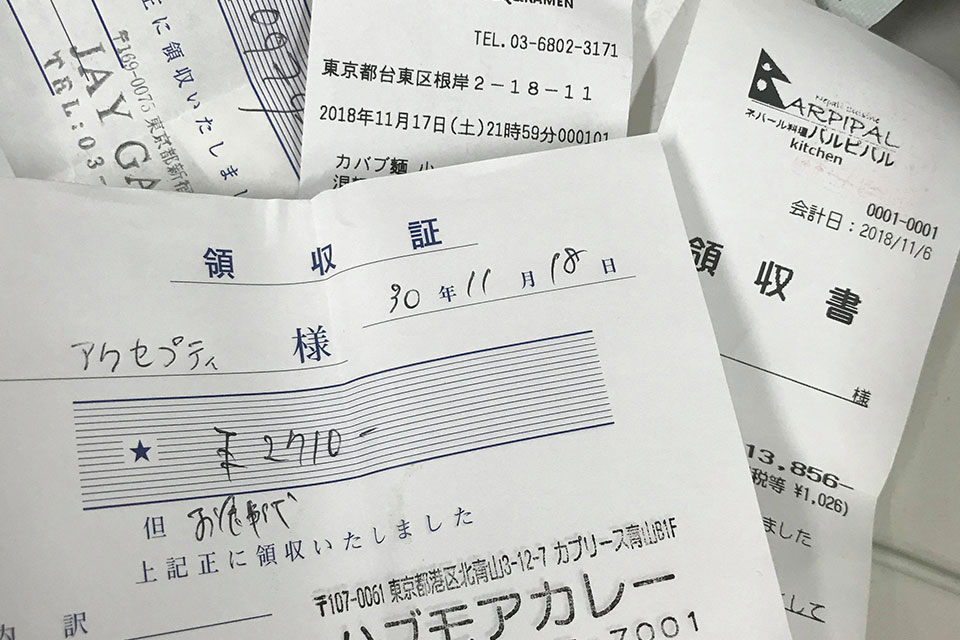 正に領収いたしまし
0924
〒169-0075 東京都新宿
JAY GA
TEL:03-
RAMEN
TEL.03-6802-3171
東京都台東区根岸2-18-11
2018年11月17日(土)21時59分000101
カバブ麺 小
Nepali Cuisine
BARPIPAL
ネパール料理 バルピパル
kitchen
0001-0001
会計日:2018/11/6
領収書
様
13,856-
税等 ¥1,026)
ました
して
領収証
30年11月18日
アクセプティ 様
★ ¥2710-
但 お食事代
上記正に領収いたしました
内訳
〒107-0061 東京都港区北青山3-12-7 カプリース青山B1F
ハブモアカレー
7001